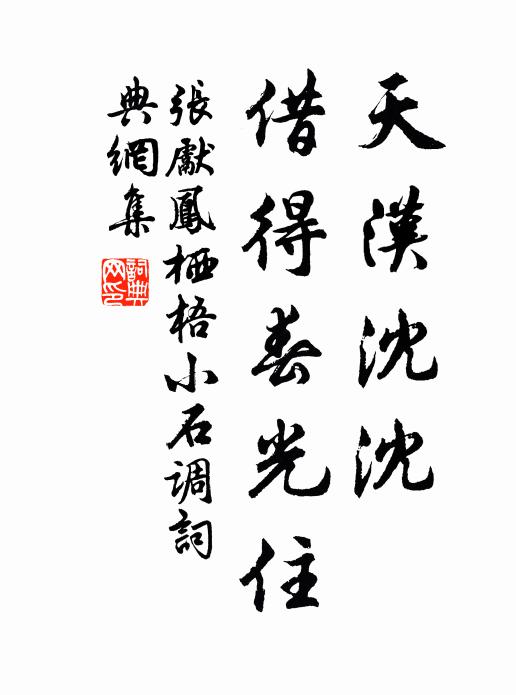 天漢沈沈
借得春光住
張獻鳳栖梧小石调詞
典網集
詞典网印